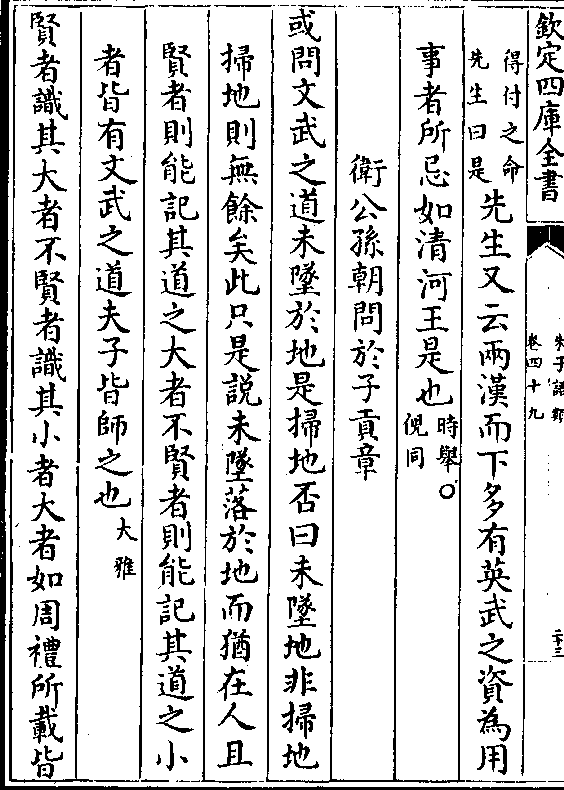 欽定四庫全書
朱子語類
卷四十九
二十三
得付之命
先生曰是
先生又云兩漢而下多有英武之資為用
事者所忌如清河王是也
時舉〇
倪同
衛公孫朝問於子貢章
或問文武之道未墜於地是掃地否曰未墜地非掃地
掃地則無餘矣此只是說未墜落於地而猶在人且
賢者則能記其道之大者不賢者則能記其道之小
者皆有文武之道夫子皆師之也
大雅
賢者識其大者不賢者識其小者大者如周禮所載皆